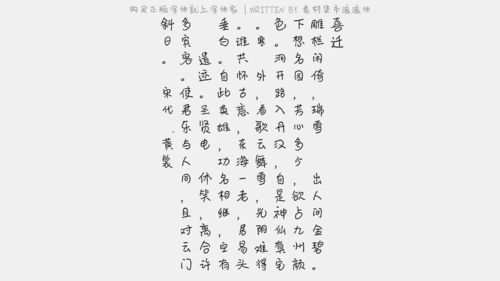 购买正版字体就上字体家 | WRITTEN BY 素材集市浪浪体
斜多 垂。。色下雕喜
日宾 白谁。想栏迁
。客遥。共 洞名闲
。迹自怀外开园倚
宋使。此古，路，，
代君圣意看入芳瑞
.乐贤雄，歌丹心雪
黄与电，东云汉多
裳人 功海舞，少
间休名一雪自，出
，笑相老，是欲人
且，继，光神占间
对离，居阴仙九金
云合空易难真州碧
门许有头得宅颜。